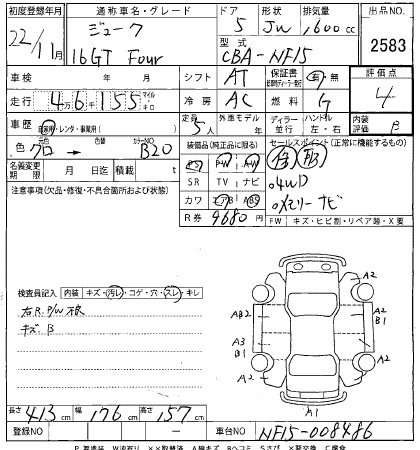 初度登録年月 通称車名・グレード ドア 形状 排気量 出品NO
22/11月 ジューク 5 JW 1,600cc 2583
16GT Four 型式 CBA-NF15
車検 年 月 シフト AT 保証書 有 無 評価点
走行 4万6千155 マイル・キロ 冷房 AC 燃料 G 4
車歴 自家用・レンタ・事業用( ) 定員 5人 外車モデル 年 ディーラー 並行 ハンドル 左・右 内装評価 B
色 クロ → 色替 カラーNO B20 装備品(純正品に限る) セールスポイント(正常に機能するもの)
名義変更期限 月 日迄 積載 t PS PW AW
注意事項(欠品・修復・不具合箇所および状態) SR TV ナビ ○4WD
カワ エアB ABS ○メモリーナビ
R券 9680円 FW キズ・ヒビ割・リペア跡・X要
検査員記入 内装 キズ・汚レ・コゲ・穴・スレ・キレ
右R.P/W不良
キズ B
A2 A2
AB2 A2
B1
A3
B1
A2 A2
A1
長さ 413cm 幅 176cm 高さ 157cm
登録NO 車台NO NF15-008486
P 要塗装 W波有り ××取替済 A線キズ Bヘコミ Sさび X要交換 C腐食